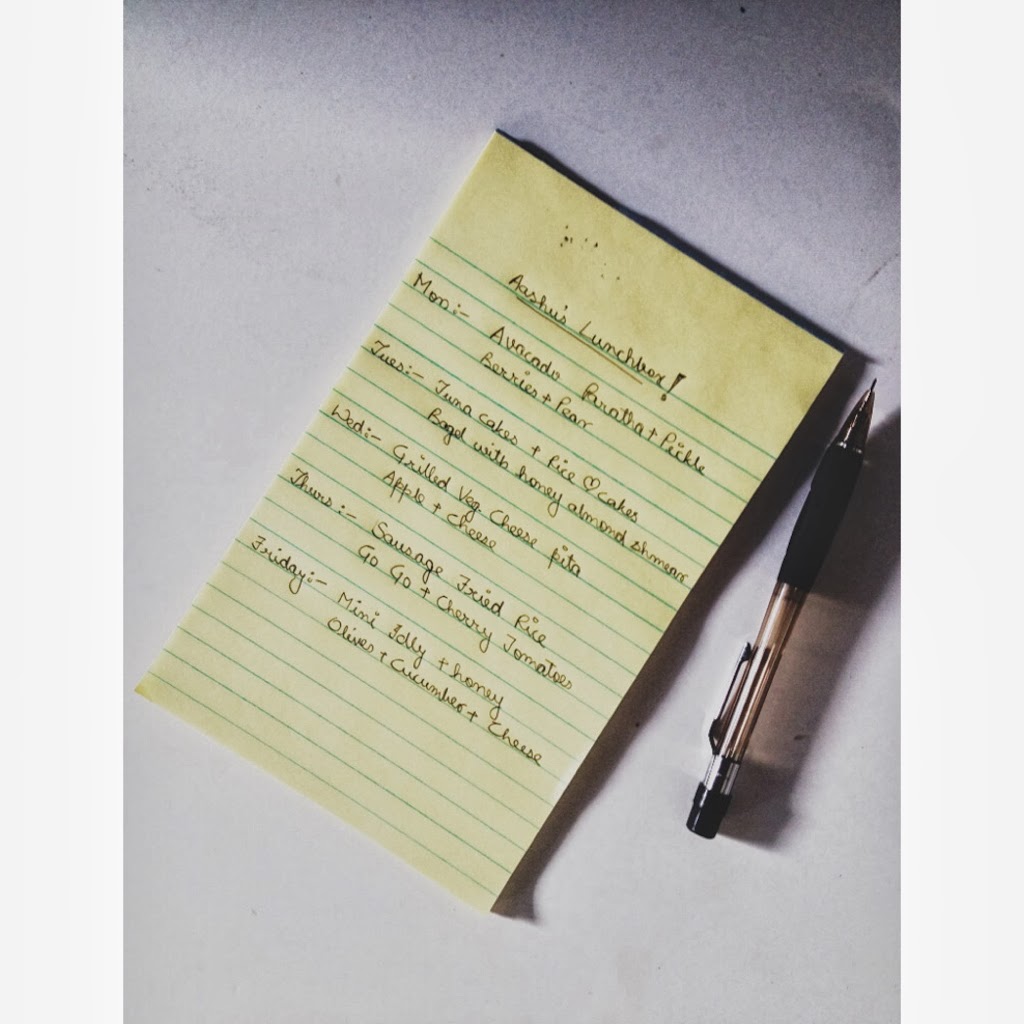 Aashu's Lunchbox!
Mon:- Avacado Paratha + Pickle
Berries + Pear
Tues:- Tuna cakes + Rice ♡ cakes
Bagel with honey almond shmear
Wed:- Grilled Veg. Cheese pita
Apple + Cheese
Thurs:- Sausage Fried Rice
Go Go + Cherry Tomatoes
Friday:- Mini Idly + honey
Olives + Cucumber + Cheese